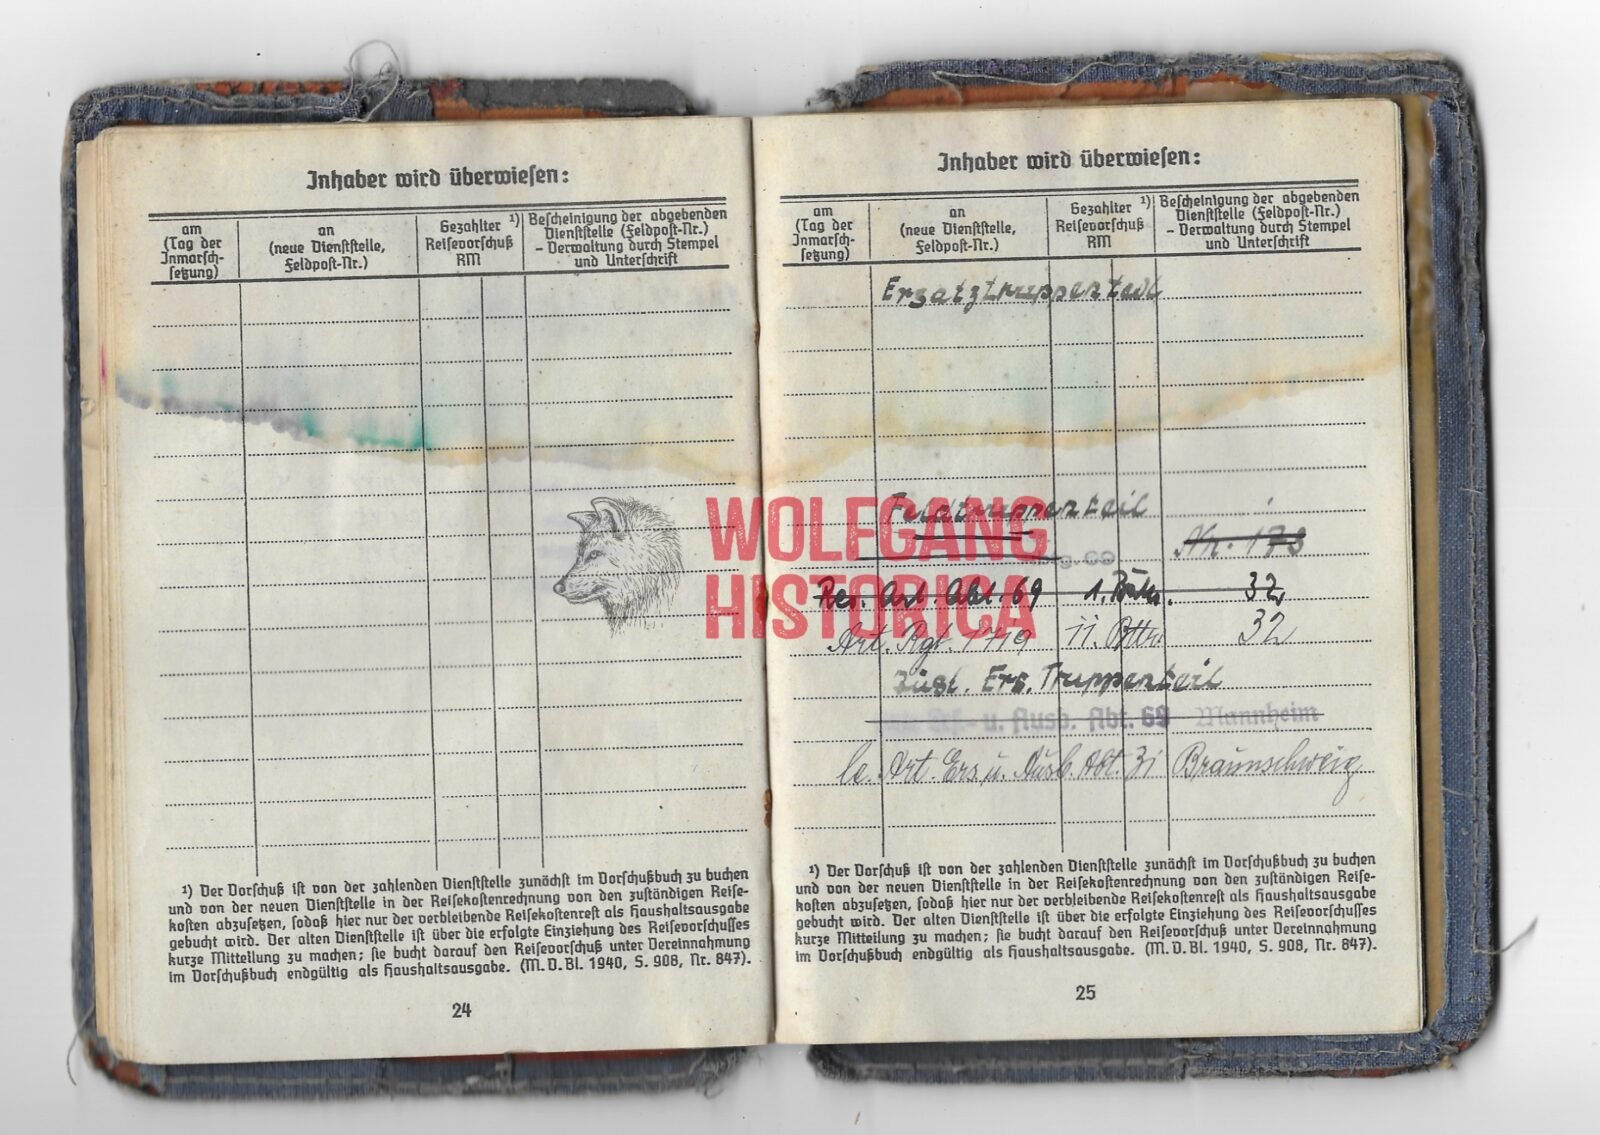 Inhaber wird überwiesen:
am
(Tag der
Inmarsch-
setzung)
an
(neue Dienststelle,
Feldpost-Nr.)
Gezahlter ¹)
Reisevorschuß
RM
Bescheinigung der abgebenden
Dienststelle (Feldpost-Nr.)
- Verwaltung durch Stempel
und Unterschrift
¹) Der Vorschuß ist von der zahlenden Dienststelle zunächst im Vorschußbuch zu buchen
und von der neuen Dienststelle in der Reisekostenrechnung von den zuständigen Reise-
kosten abzusetzen, sodaß hier nur der verbleibende Reisekostenrest als Haushaltsausgabe
gebucht wird. Der alten Dienststelle ist über die erfolgte Einziehung des Reisevorschusses
kurze Mitteilung zu machen; sie bucht darauf den Reisevorschuß unter Vereinnahmung
im Vorschußbuch endgültig als Haushaltsausgabe. (M.V.Bl. 1940, S. 908, Nr. 847).
24
Inhaber wird überwiesen:
am
(Tag der
Inmarsch-
setzung)
an
(neue Dienststelle,
Feldpost-Nr.)
Gezahlter ¹)
Reisevorschuß
RM
Bescheinigung der abgebenden
Dienststelle (Feldpost-Nr.)
- Verwaltung durch Stempel
und Unterschrift
Ersatztruppenteil
Feldtruppenteil
Nr. 173
Res. Art. Abt. 69 1. Battr. 32
Art. Rgt. 1719 11. Bttr. 32
Zust. Ers. Truppenteil
Ers.- u. Ausb. Abt. 69 Mannheim
le. Art. Ers. u. Ausb. Abt. 31 Braunschweig
¹) Der Vorschuß ist von der zahlenden Dienststelle zunächst im Vorschußbuch zu buchen
und von der neuen Dienststelle in der Reisekostenrechnung von den zuständigen Reise-
kosten abzusetzen, sodaß hier nur der verbleibende Reisekostenrest als Haushaltsausgabe
gebucht wird. Der alten Dienststelle ist über die erfolgte Einziehung des Reisevorschusses
kurze Mitteilung zu machen; sie bucht darauf den Reisevorschuß unter Vereinnahmung
im Vorschußbuch endgültig als Haushaltsausgabe. (M.V.Bl. 1940, S. 908, Nr. 847).
25
WOLFGANG
HISTORICA